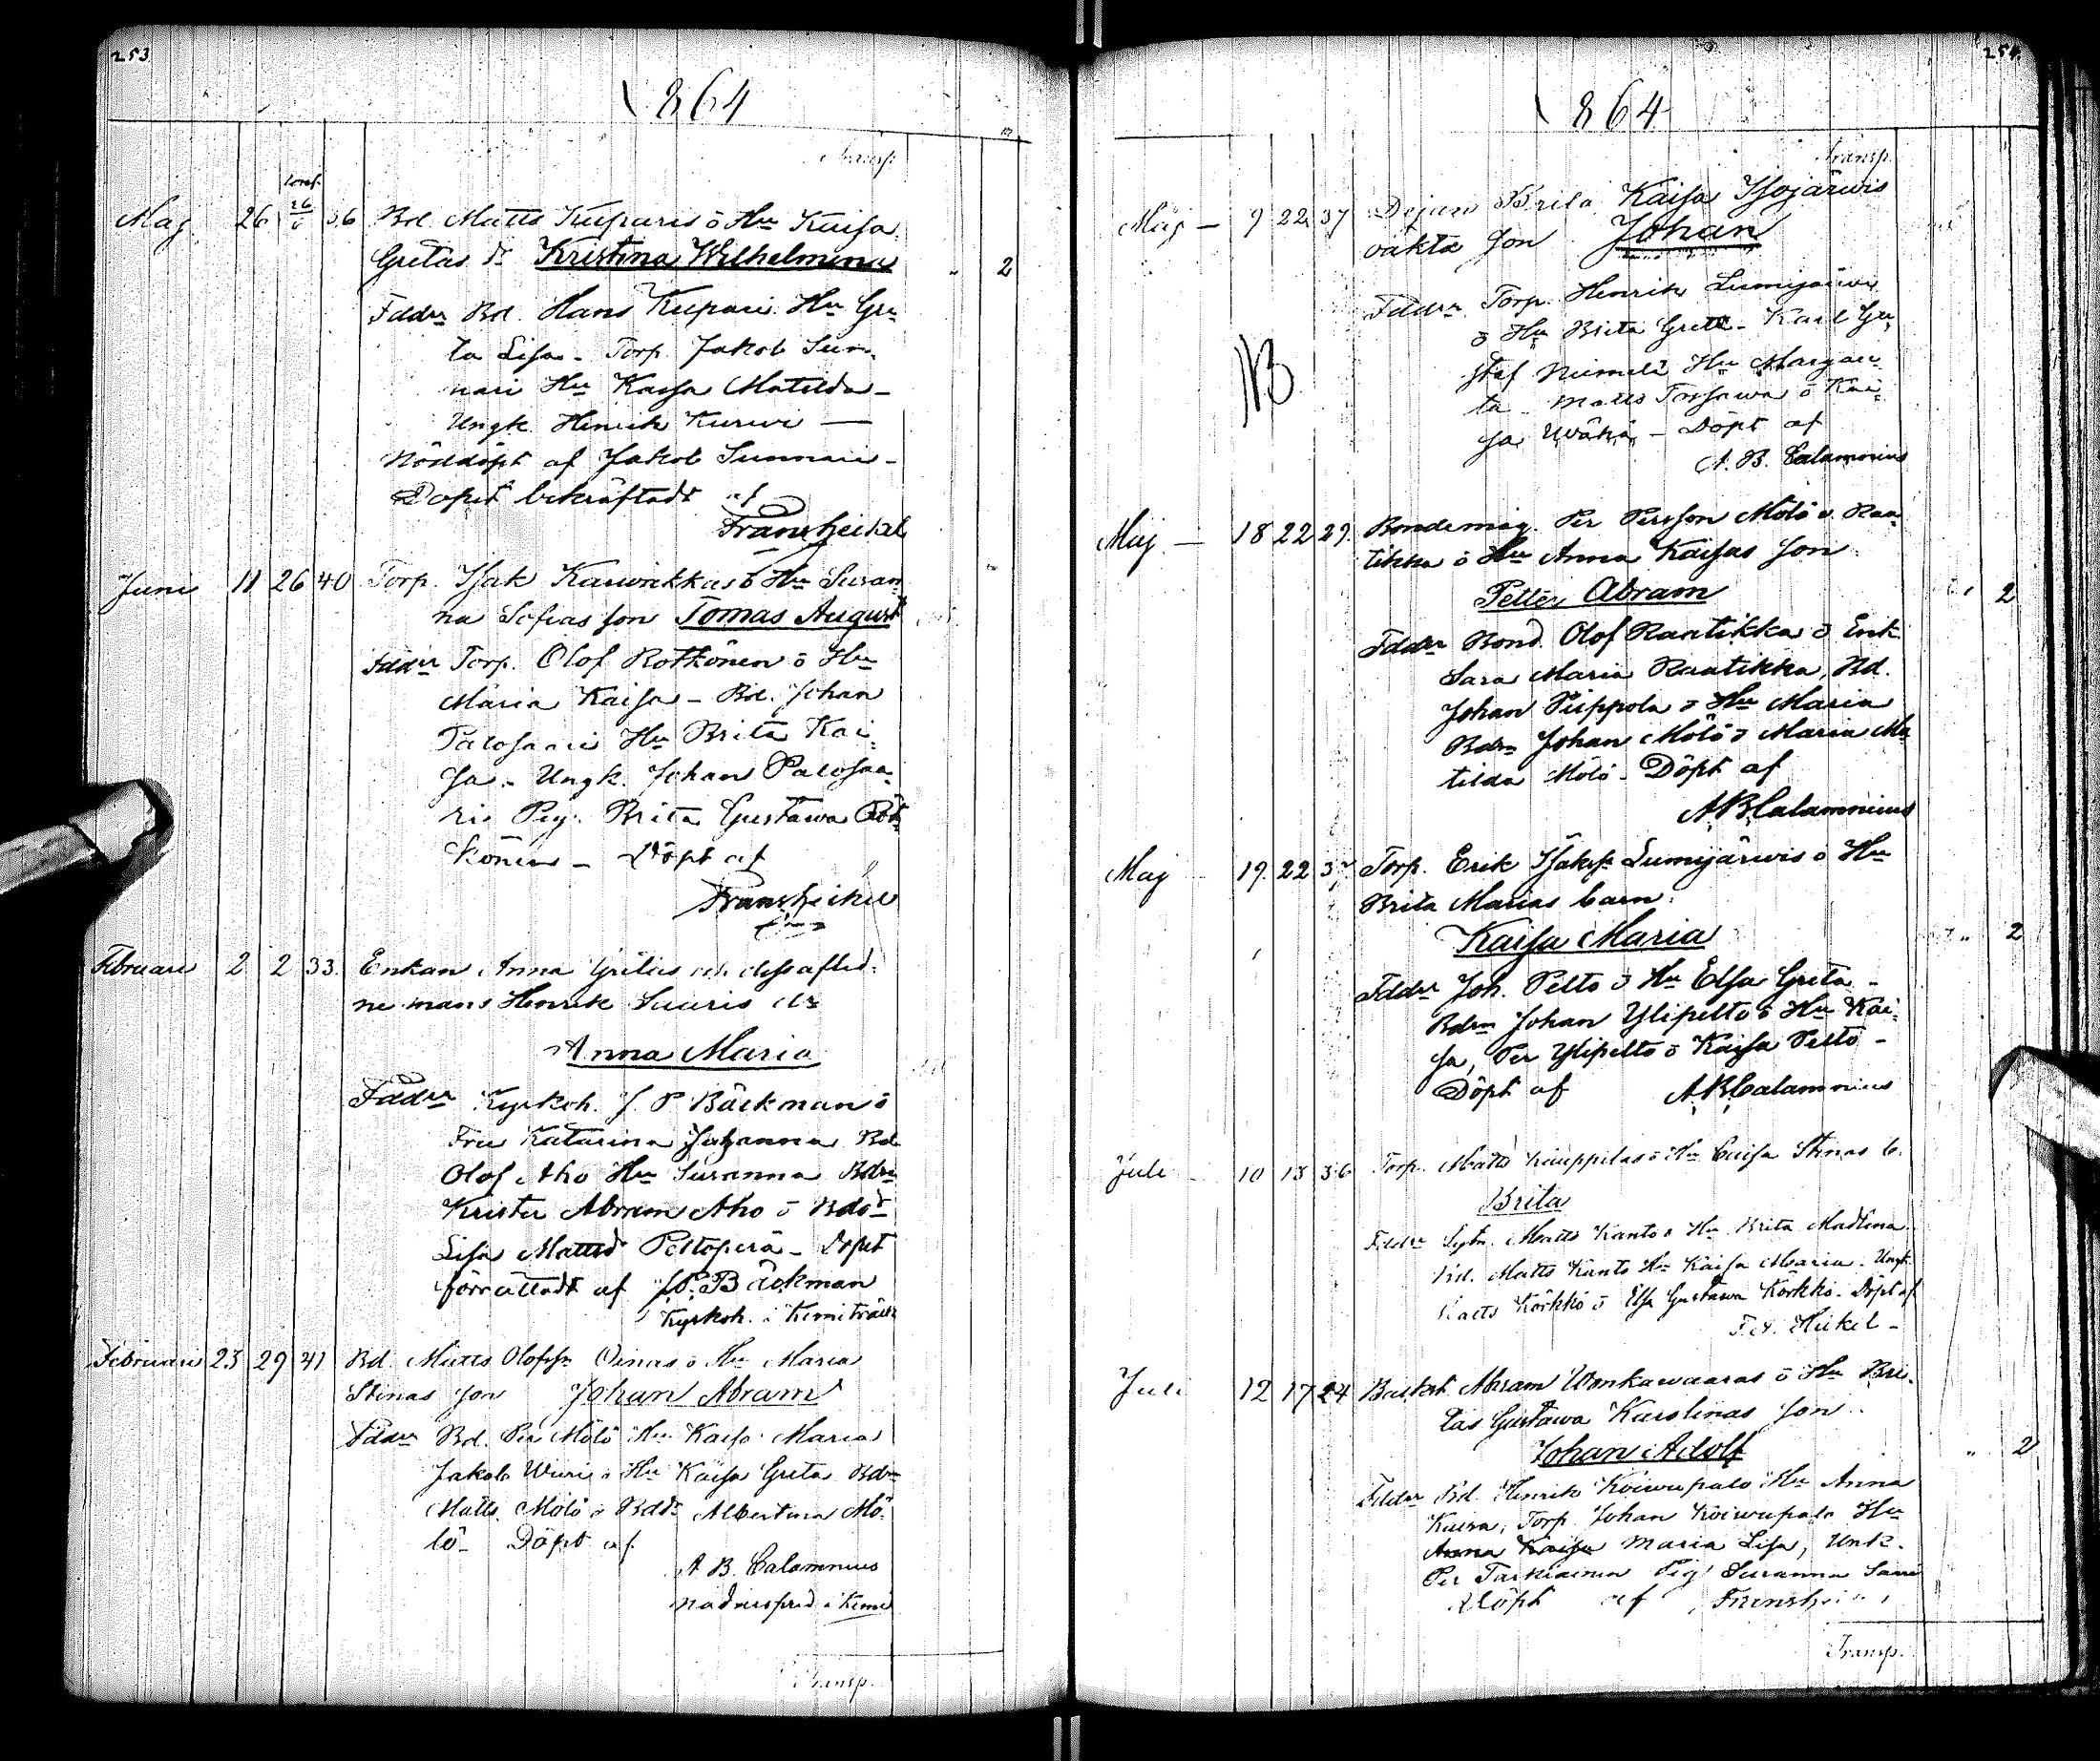 253
1864
Transp.
conf.
Maj 26 26/6 36 Bd. Matts Kuparis ö Hu Kaisa
Gretas dr Kristina Wilhelmina 2
Fddr Bd. Hans Kupari Hu Gre
ta Lisa - Torp. Jakob Sun
nari Hu Kaisa Matilda -
Ungk. Henrik Kurwi —
Nöddöpt af Jakob Sunnari -
Dopet bekräftadt af
Frans Heikel
Juni 11 26 40 Torp. Isak Karwakkas ö Hu Susan
na Sofias son Tomas August
Fddr Torp. Olof Rottönen ö Hu
Maria Kaisa - Bd. Johan
Palosaari Hu Brita Kai
sa - Ungk. Johan Palosaa
ri Pig. Brita Gustawa
könen - Döpt af
Frans Heikel
Februari 2 2 33 Enkan Anna Gretas och dess aflid
ne mans Henrik Suuris dr
Anna Maria
Fddr Kyrkoh. J. P. Bäckman ö
Fru Katarina Johanna Bd
Olof Aho Hu Susanna Bdsn
Krister Abram Aho ö Bdsdr
Lisa Mattsd Peltoperä - Dopet
förrättadt af J. P. Bäckman
Kyrkoh. i Kemiträsk
Februari 23 29 41 Bd. Matts Olofss. Oinas ö Hu Maria
Stinas son Johan Abram
Fddr Bd. Per Mölö Hu Kaisa Maria
Jakob Wiiri ö Hu Kaisa Greta Bdsn
Matts Mölö ö Bddr Albertina Mö
lö - Döpt af
A. B. Calamnius
nådårspred. i Kemi
Transp.
254
1864
Transp.
Maj — 9 22 37 Dejan Brita Kaisa Isojärwis
oäkta son Johan
NB
Fddr Torp. Henrik Lumijärwi
ö Hu Brita Greta - Karl Gu
staf Niemelä Hu Margare
ta - Matts Tossawa ö Kai
sa - Döpt af
A. B. Calamnius
Maj — 18 22 29 Bondemåg. Per Persson Mölö o. Raa
tikka ö Hu Anna Kaisas son
Petter Abram 2
Fddr Bond. Olof Raatikka ö Enk.
Sara Maria Raatikka, Bd.
Johan Piippola ö Hu Maria
Bdsn Johan Mölö ö Maria Ma
tilda Mölö - Döpt af
A. B. Calamnius
Maj 19 22 Torp. Erik Isakss. Lumijärwis ö Hu
Brita Marias barn
Kaisa Maria 2
Fddr Joh. Pelto ö Hu Elsa Greta -
Bdsn Johan Ylipelto ö Hu Kai
sa, Per Ylipelto ö Kaisa Pelto -
Döpt af A. B. Calamnius
Juli 10 13 36 Torp. Matts Kauppilas ö Hu Caisa Stinas b.
Brita
Fddr Matts Kanto ö Hu Brita Madlena
Bd. Matts Kanto Hu Kaisa Maria - Ungk.
Matts Körkkö ö Elsa Gustawa Körkkö - Döpt af
F. Heikel -
Juli 12 17 24 Backst. Abram Wonkawaaras ö Hu Bri
tas Gustawa Karolinas son
Johan Adolf 2
Fddr Bd. Henrik Koiwupalo Hu Anna
Kaisa, Torp. Johan Koiwupalo Hu
Anna Kaisa Maria Lisa, Unk.
Per Tarkiainen Pig. Susanna Sarri
Döpt af
Transp.